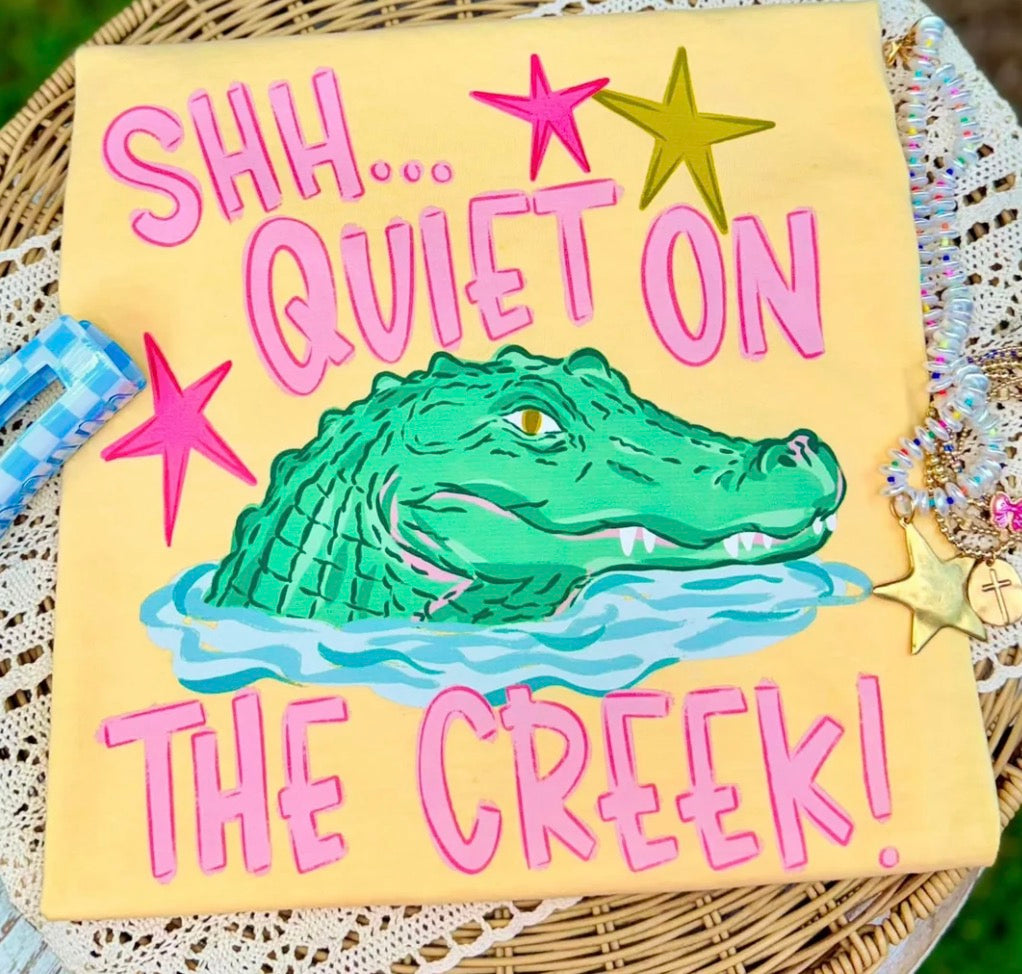 SHH...
QUIET ON
THE CREEK!